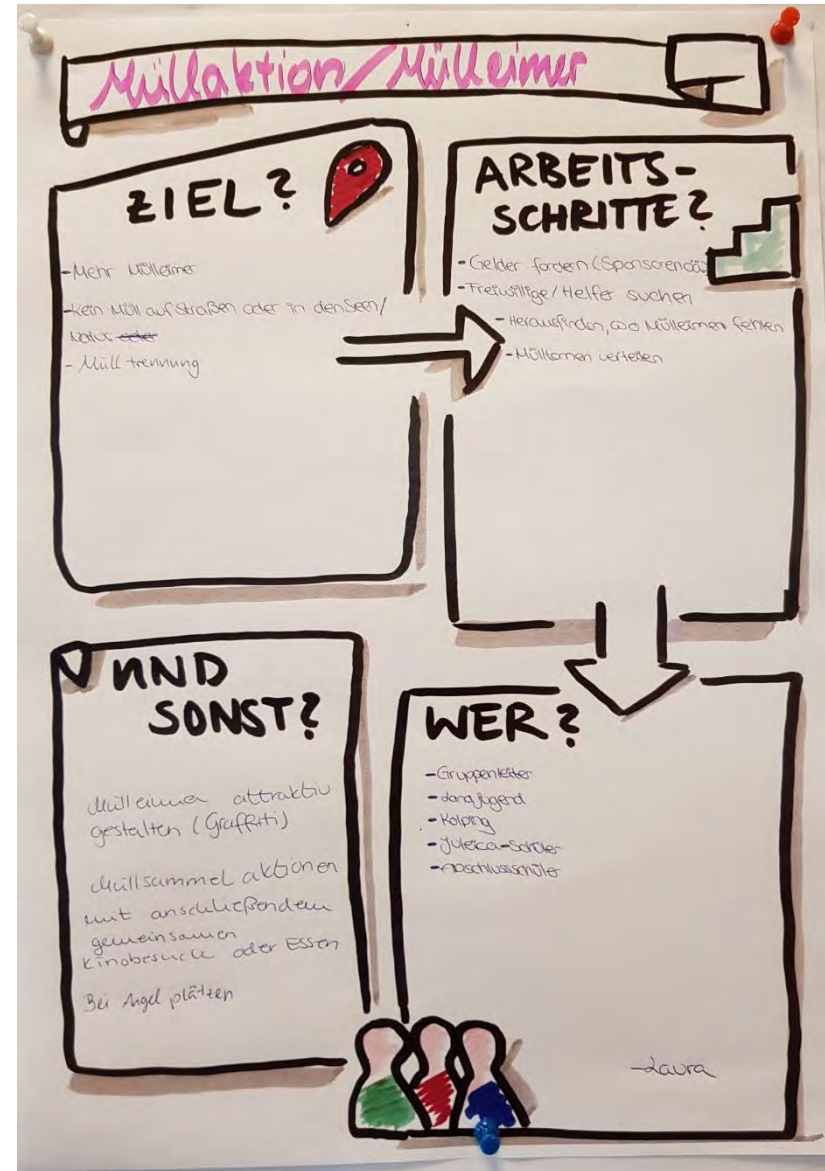 Müllaktion/Mülleimer
ZIEL?
-Mehr Mülleimer
-Kein Müll auf Straßen oder in den Seen/
Natur oder
- Müll trennung
ARBEITS-
SCHRITTE?
-Gelder fordern (Sponsorenlä
-Freiwillige/Helfer suchen
-Herausfinden, wo Mülleimer fehlen
-Mülltonnen verteilen
UND
SONST?
Mülleimer attraktiv
gestalten (Graffiti)
Müllsammel aktionen
mit anschließendem
gemeinsamen
Kinobesuch oder Essen
Bei Angel plätzen
WER?
-Gruppenleiter
-Landjugend
-Kolping
-Juleica-Schüler
-Abschlussschüler
-Laura